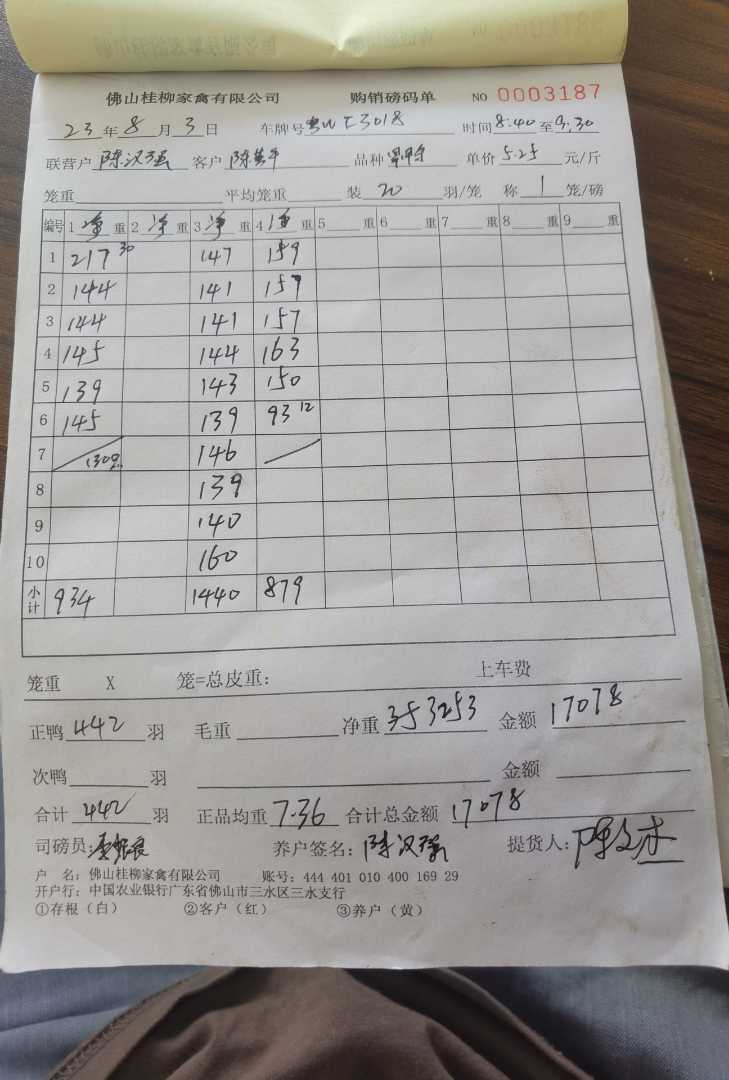 佛山桂柳家禽有限公司 购销磅码单 NO 0003187
23 年 8 月 3 日 车牌号 时间 8:40 至 9:30
联营户 陈汉强 客户 品种 单价 5.25 元/斤
笼重 平均笼重 装 20 羽/笼 称 1 笼/磅
编号 1 净 重 2 净 重 3 净 重 4 净 重 5 重 6 重 7 重 8 重 9 重
1 217 30 147 159
2 144 141 157
3 144 141 157
4 145 144 163
5 139 143 150
6 145 139 93 12
7 130 146
8 139
9 140
10 160
小计 934 1440 879
笼重 X 笼=总皮重: 上车费
正鸭 442 羽 毛重 净重 3253 金额 17078
次鸭 羽 金额
合计 442 羽 正品均重 7.36 合计总金额 17078
司磅员: 养户签名: 陈汉强 提货人:
户 名: 佛山桂柳家禽有限公司 账号: 444 401 010 400 169 29
开户行: 中国农业银行广东省佛山市三水区三水支行
①存根（白） ②客户（红） ③养户（黄）